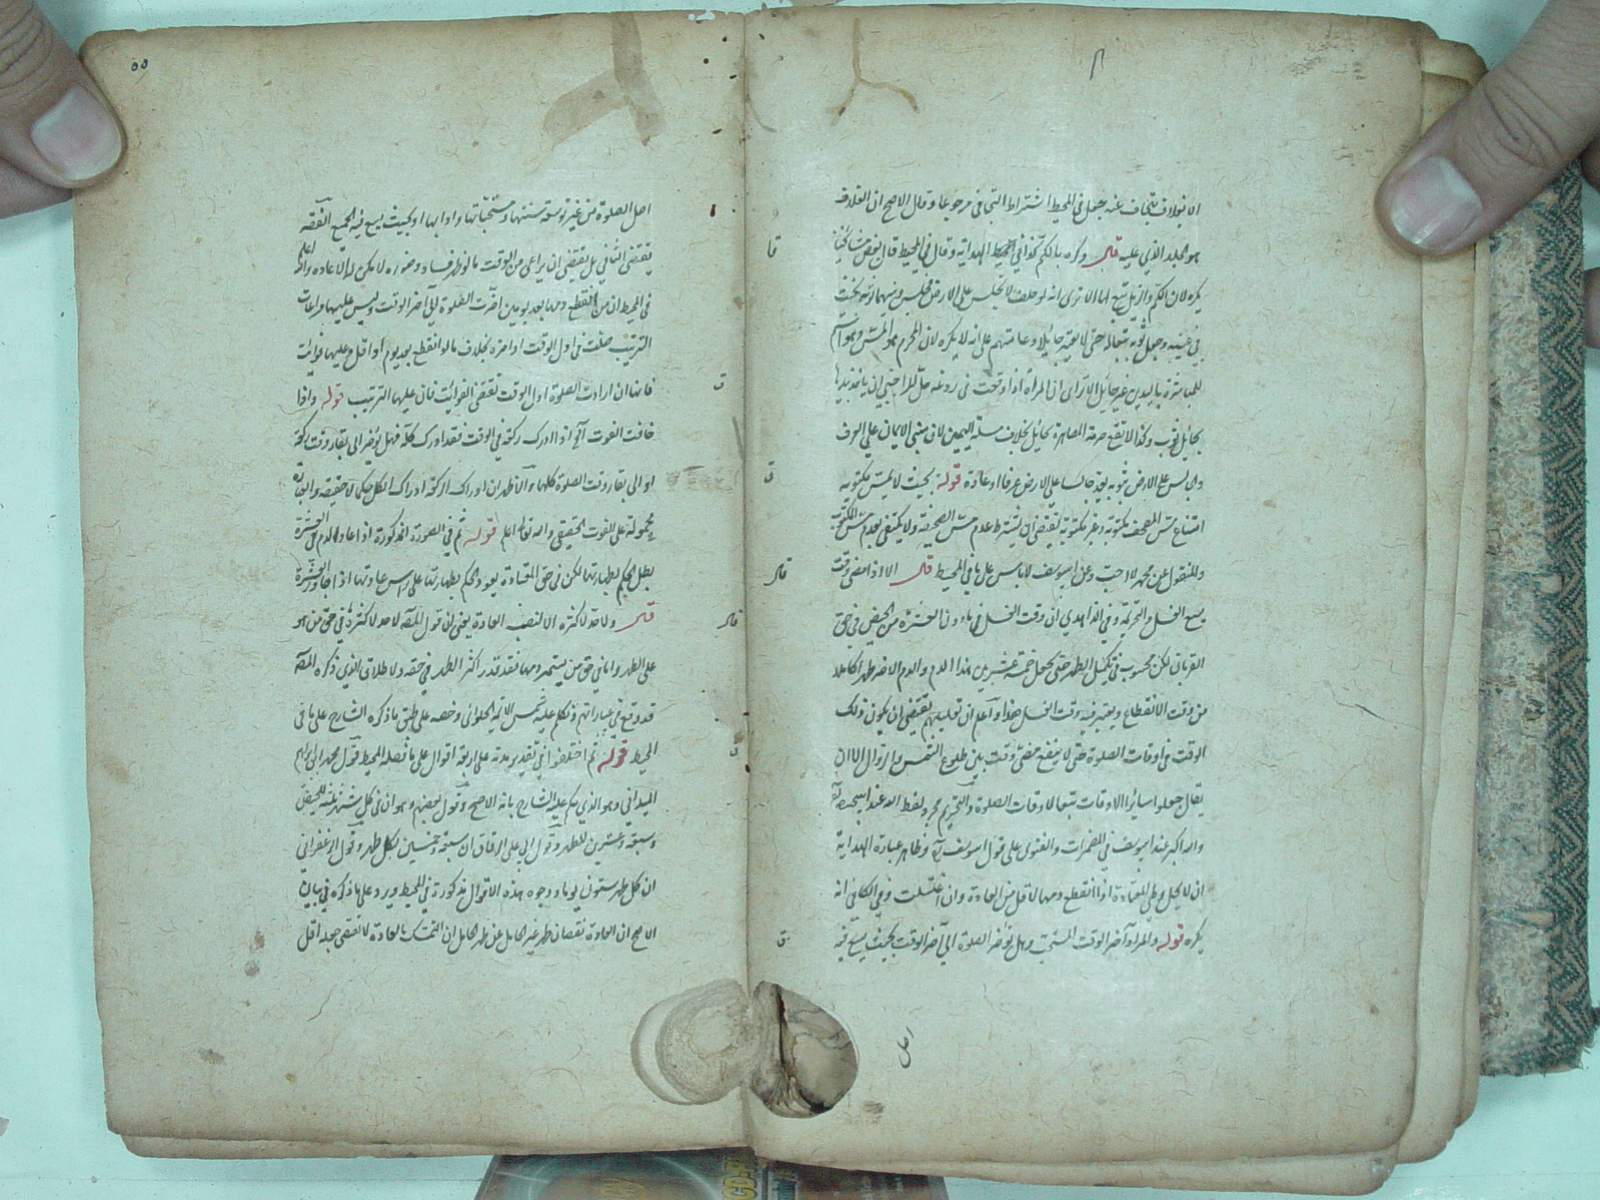 الا بغلاف متجاف عنه جعل في المحيط اشتراط التجافي مرجوعا وقال الاصح ان الغلاف
هو الجلد الذي عليه قال وكره بالكم كذا في المحيط الهداية وقال في المحيط قال بعض مشايخنا
يكره لان الكم والذيل تبع لها الا ترى انه لو حلف لا يجلس على الارض فجلس وثيابه تحت
للمباشرة باليد من غير حائل الا ترى ان المراة اذا وقعت في ردغة حل للاجنبي ان ياخذ بيدها
بحائل ثوب وكذا لا تقع حرمة المصاهرة بحائل بخلاف مسئلة اليمين لان مبنى الايمان على العرف
والجالس على الارض بثوبه يعد جالسا على الارض عرفا وعادة قوله بحيث لا يمس مكتوبه
امتناع مس المصحف مكتوبه وغير مكتوبه يقتضي ان يشترط عدم مس الصحيفة ولا يكتفى بعدم مس المكتوب
والمنقول عن محمد لا احب وعن ابي يوسف لا باس على ما في المحيط قال الا اذا مضى وقت
يسع الغسل والتحريمة وفي الزاهدي ان وقت الغسل فيما دون العشرة من الحيض في حق
القربان لكن محسوب في تكميل الطهر حتى يجعل خمسة عشر بين هذا الدم والدم الاخر طهرا كاملا
من وقت الانقطاع ويعتبر فيه وقت الغسل هذا واعلم ان تعليلهم يقتضي ان يكون ذلك
الوقت في اوقات الصلوة حتى لا ينفع مضي وقت بين طلوع الشمس والزوال الا ان
يقال جعلوا سائر الاوقات تبعا لاوقات الصلوة والتحريم مجرد لفظ الله عند ابي حنيفة
والله اكبر عند ابي يوسف في المضمرات والفتوى على قول ابي يوسف وظاهر عبارة الهداية
ان لا يحل وطي المعتادة اذا انقطع دمها لاقل من العادة وان اغتسلت وفي الكافي انه
يكره قوله والمراد آخر الوقت المستحب وهل تؤخر الصلوة الى آخر الوقت بحيث يسع فيه
قا
ق
قال
ق
اصل
٥٥
اصل الصلوة من غير توسعة سننها ومستحباتها وادابها او بحيث يسع فيه الجميع القصة
يقتضي الثاني بل يقتضي ان يراعي من الوقت ما لو ظهر فساد وضوءه لا يمكن له الاعادة والله اعلم
في المحيط ان من انقطع دمها بعد يومين اخرت الصلوة الى آخر الوقت وليس عليها مراعات
الترتيب صلت في اول الوقت او اخره بخلاف ما لو انقطع بعد يوم او اقل عليها فوايت
فانها ان ارادت الصلوة اول الوقت تقضى الفوائت فان عليها الترتيب قوله واذا
خافت الفوت الخ اذا ادرك ركعة في الوقت فقد ادرك كله فهل يؤخر الى بقاء وقت ركعة
او الى بقاء وقت الصلوة كلها والاظهر ان ادراك الركعة ادراك الكل حكما لا حقيقة
محمولة على الفوت الحقيقي والله تعالى اعلم قوله ثم في الصورة المذكورة اذا عاد الدم في العشرة
بطل الحكم بطهارتها لكن في حق المعتادة يعود الحكم بطهارتها على راس عادتها اذا جاوز العشرة
قال ولا حد لاكثره الا لنصب العادة يعني ان قول المصنف لا حد لاكثره في حق من هو
على الطهر واما في حق من يستمر دمها فقد قدر اكثر الطهر في حقه ولا طلاق الذي ذكره المصنف
قد وقع في عباراتهم وتكلم عليه شمس الائمة الحلوائي وخصه على طبق ما ذكره الشارح على ما في
المحيط قوله ثم اختلفوا في تقدير مدته على اربعة اقوال على ما فصله المحيط قول محمد ابن ابراهيم
الميداني وهو الذي حكم عليه الشارح بانه الاصح وقول بعضهم وهو ان في كل شهر ثلثة للحيض
وسبعة وعشرين للطهر وقول ابي علي الدقاق ان سبعة وخمسين لكل طهر وقول الزعفراني
ان كل طهر ستون يوما ووجوه هذه الاقوال مذكورة في المحيط ويرد على ما ذكره في بيان
الاصح ان العادة نقصان طهر غير الحامل عن طهر الحامل ان التمسك بالعادة لا تقتضي جعله اقل
ق
قال
ق